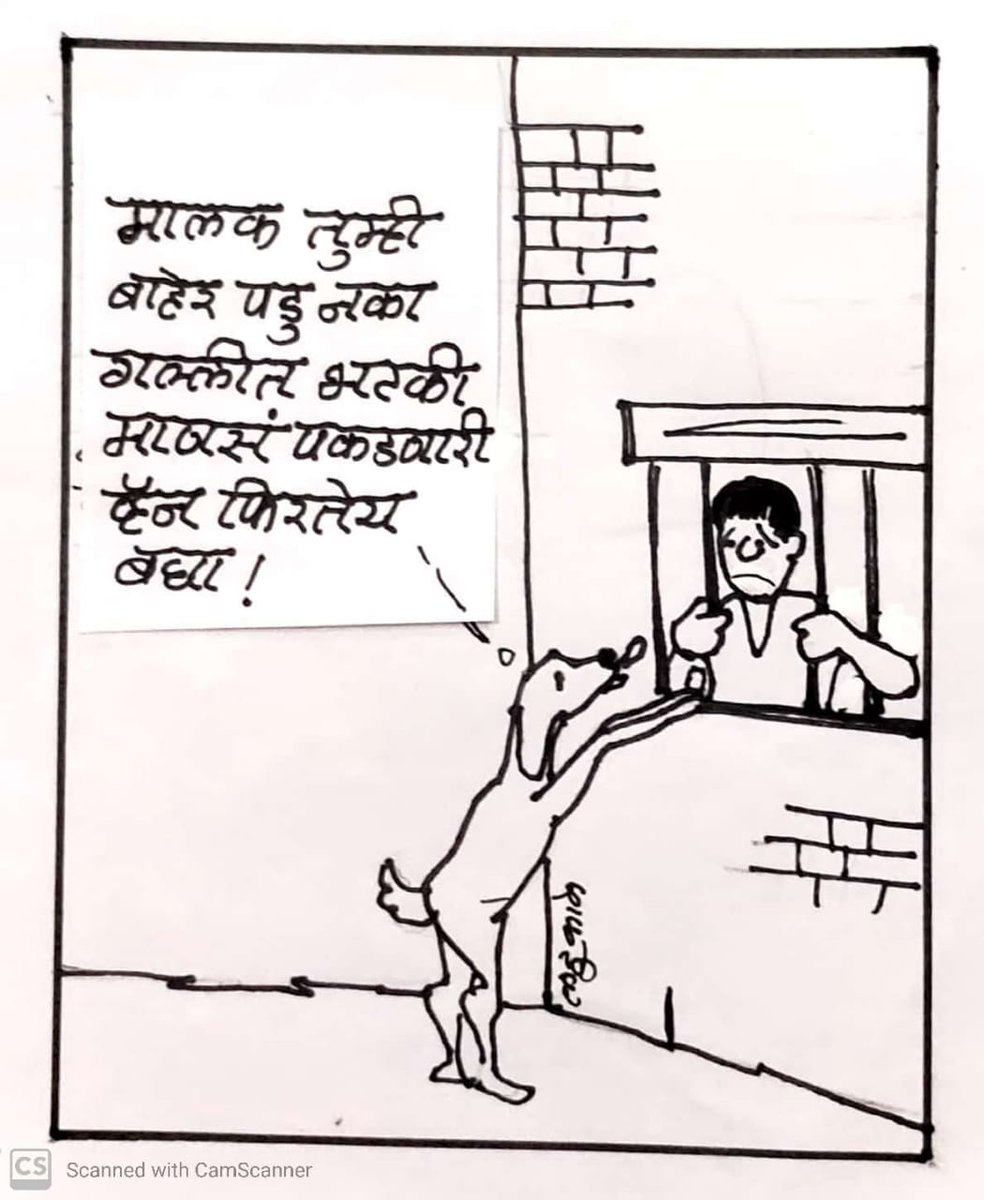 मालक तुम्ही
बाहेर पडु नका
गल्लीत भटकी
माणसं पकडणारी
व्हॅन फिरतेय
बघा!
CS Scanned with CamScanner